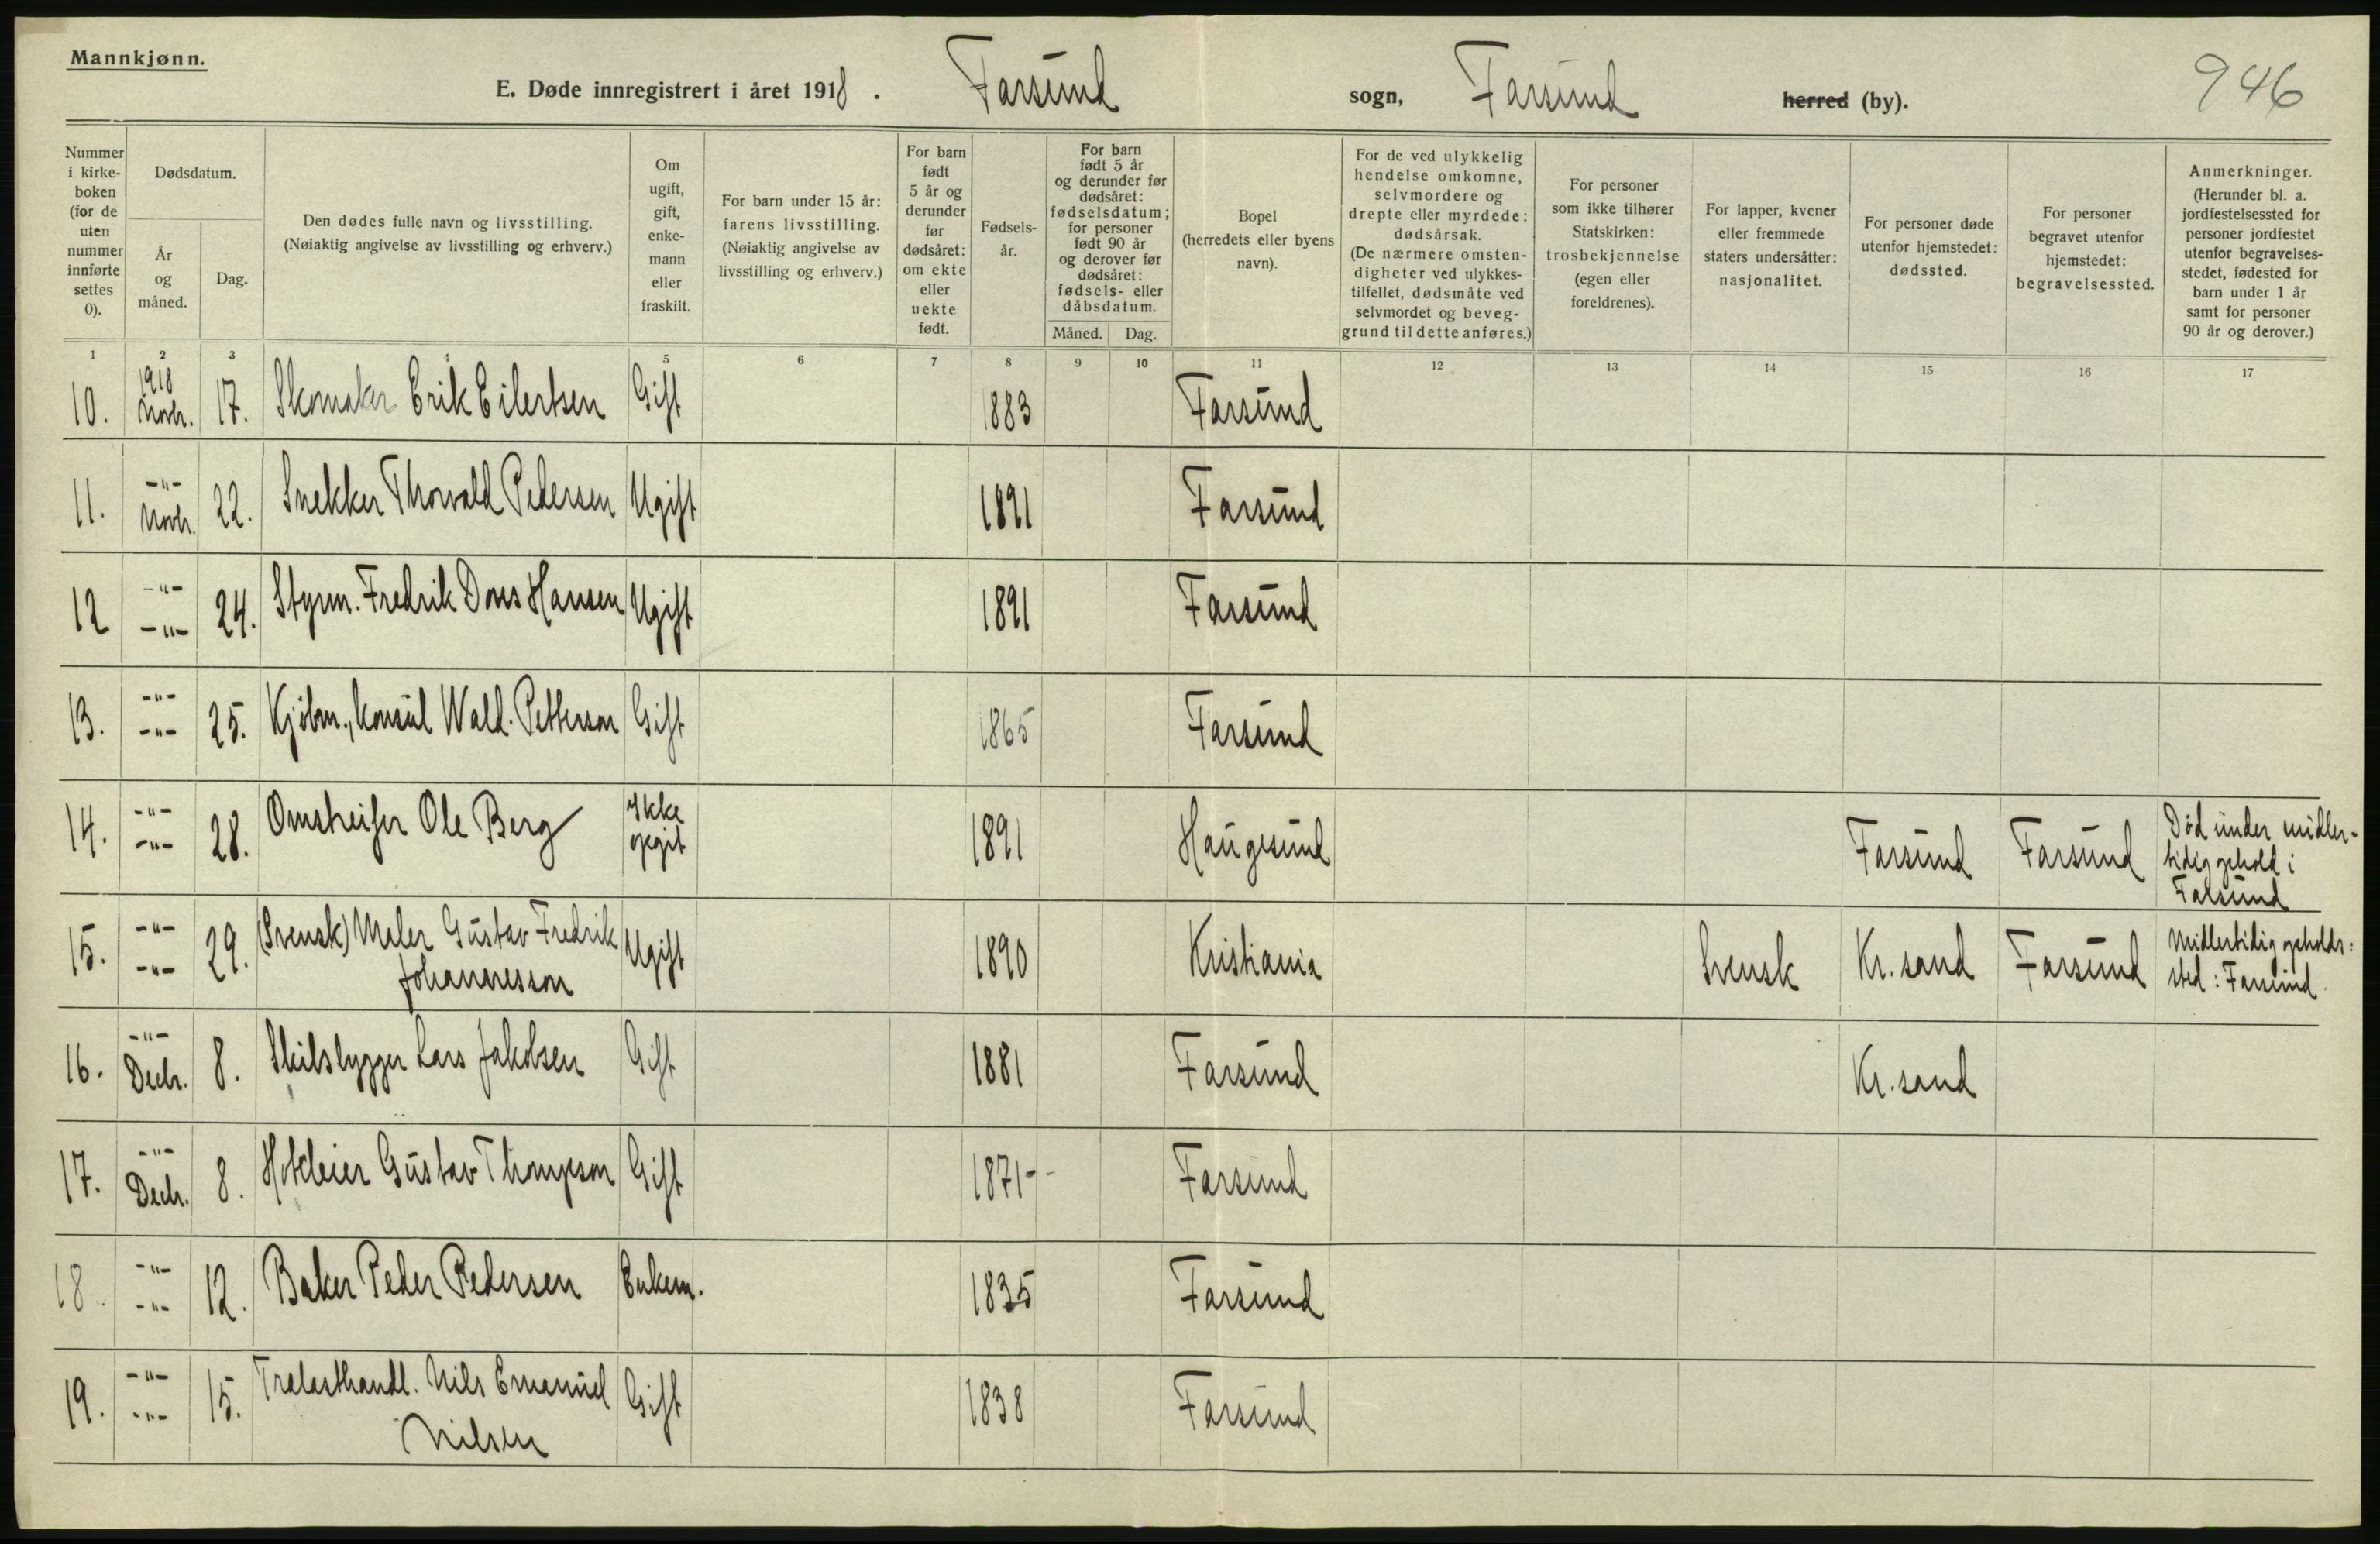 Mannkjønn.
E. Døde innregistrert i året 1918. Farsund sogn, Farsund herred (by). 946
Nummer i kirkeboken (for de uten nummer innførte settes 0).
Dødsdatum.
År og måned.
Dag.
Den dødes fulle navn og livsstilling.
(Nøiaktig angivelse av livsstilling og erhverv.)
Om ugift, gift, enkemann eller fraskilt.
For barn under 15 år: farens livsstilling. (Nøiaktig angivelse av livsstilling og erhverv.)
For barn født 5 år og derunder før dødsåret: om ekte eller uekte født.
Fødselsår.
For barn født 5 år og derunder før dødsåret: fødselsdatum; for personer født 90 år og derover før dødsåret: fødsels- eller dåbsdatum.
Måned. Dag.
Bopel (herredets eller byens navn).
For de ved ulykkelig hendelse omkomne, selvmordere og drepte eller myrdede: dødsårsak. (De nærmere omstendigheter ved ulykkestilfellet, dødsmåte ved selvmordet og beveggrund til dette anføres.)
For personer som ikke tilhører Statskirken: trosbekjennelse (egen eller foreldrenes).
For lapper, kvener eller fremmede staters undersåtter: nasjonalitet.
For personer døde utenfor hjemstedet: dødssted.
For personer begravet utenfor hjemstedet: begravelsessted.
Anmerkninger. (Herunder bl. a. jordfestelsessted for personer jordfestet utenfor begravelsesstedet, fødested for barn under 1 år samt for personer 90 år og derover.)
1 2 3 4 5 6 7 8 9 10 11 12 13 14 15 16 17
10. 1918 Novbr. 17. Skomaker Erik Eilertsen Gift 1883 Farsund
11. -"- Novbr. 22. Snekker Thorvald Pedersen Ugift 1891 Farsund
12 -"- -"- 24. Styrm. Fredrik Hansen Ugift 1891 Farsund
13. -"- -"- 25. Kjøbm., konsul Wald. Petterson Gift 1865 Farsund
14. -"- -"- 28. Ole Berg Ikke opgit 1891 Haugesund Farsund Farsund Død under midlertidig ophold i Farsund
15. -"- -"- 29. (Svensk) Maler Gustav Fredrik
Johannesson Ugift 1890 Kristiania Svensk Kr.sand Farsund Midlertidig opholdssted: Farsund.
16. -"- Decbr. 8. Skibsbygger Lars Jakobsen Gift 1881 Farsund Kr.sand
17. -"- Decbr. 8. Hoteleier Gustav Thompson Gift 1871- - Farsund
18. -"- -"- 12. Baker Peder Pedersen Enkem. 1835 Farsund
19. -"- -"- 15. Trelasthandl. Nils Emanuel
Nilsen Gift 1838 Farsund